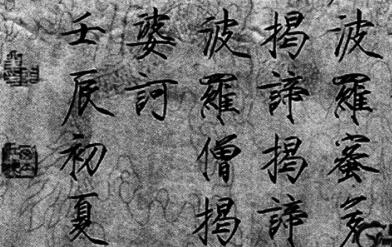 波羅蜜多
揭諦揭諦
波羅僧揭
婆訶
壬辰初夏